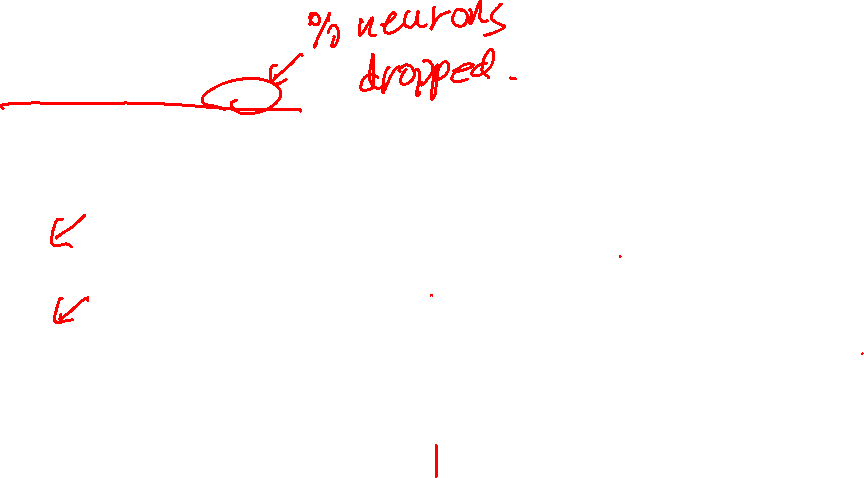 % neurons
dropped.